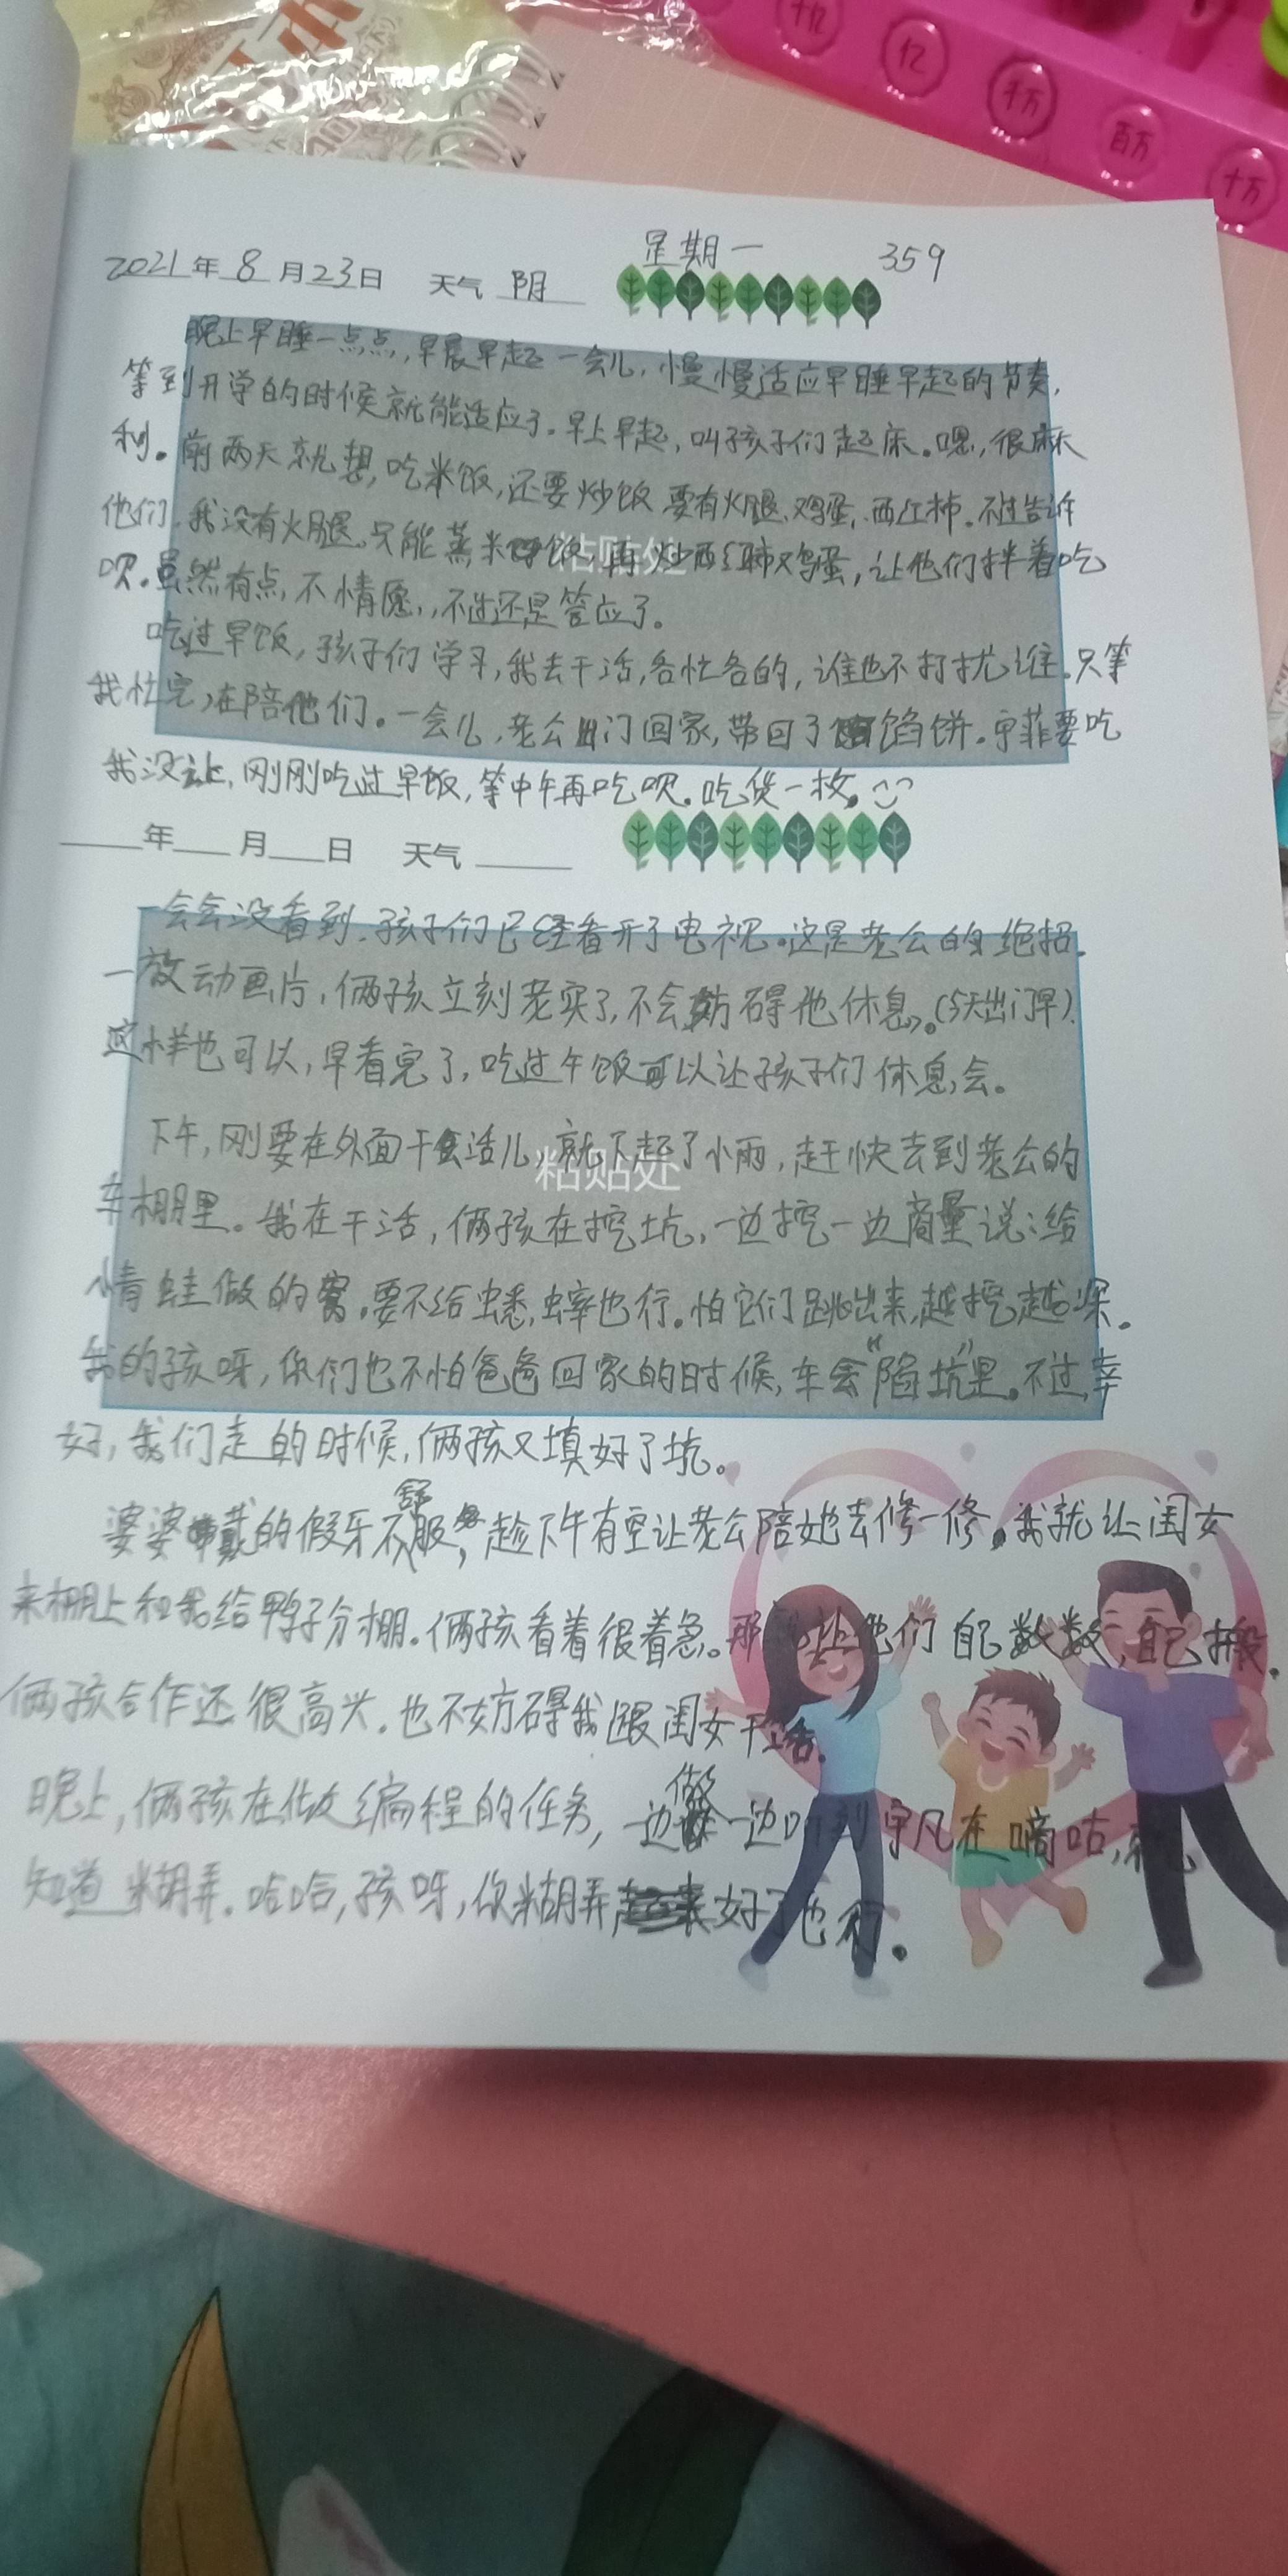 亿
千万
百万
十万
星期一 359
2021年8月23日 天气 阴
晚上早睡一点点,早晨早起一会儿,慢慢适应早睡早起的节奏,
等到开学的时候就能适应了。早上早起,叫孩子们起床。嗯,很麻
利。前两天就想,吃米饭,还要炒饭 要有火腿、鸡蛋、西红柿。不过告诉
他们,我没有火腿。只能蒸米饭,再炒西红柿鸡蛋,让他们拌着吃
呗。虽然有点,不情愿,不过还是答应了。
粘贴处
吃过早饭,孩子们学习,我去干活,各忙各的,谁也不打扰谁。只等
我忙完,在陪他们。一会儿,老公出门回家,带回了馅饼。宇菲要吃
我没让,刚刚吃过早饭,等中午再吃呗。吃货一枚。
年 月 日 天气
一会会没看到,孩子们已经看开了电视。这是老公的绝招。
一放动画片,俩孩立刻老实了,不会妨碍他休息。(5天出门早)
这样也可以,早看完了,吃过午饭可以让孩子们休息会。
下午,刚要在外面干活儿,就下起了小雨,赶快去到老公的
粘贴处
车棚里。我在干活,俩孩在挖坑,一边挖一边商量说:给
青蛙做的窝。要不给蟋蟀也行。怕它们跳出来,越挖越深。
我的孩呀,你们也不怕爸爸回家的时候,车会“陷坑”里。不过,幸
好,我们走的时候,俩孩又填好了坑。
婆婆戴的假牙不舒服,趁下午有空让老公陪她去修一修。我就让闺女
来棚上和我给鸭子分棚。俩孩看着很着急。那就让他们自己数数,自己搬。
俩孩合作还很高兴。也不妨碍我跟闺女干活。
晚上,俩孩在做编程的任务,一边做一边听到宇凡在嘀咕,就
知道糊弄。哈哈,孩呀,你糊弄好了也行。